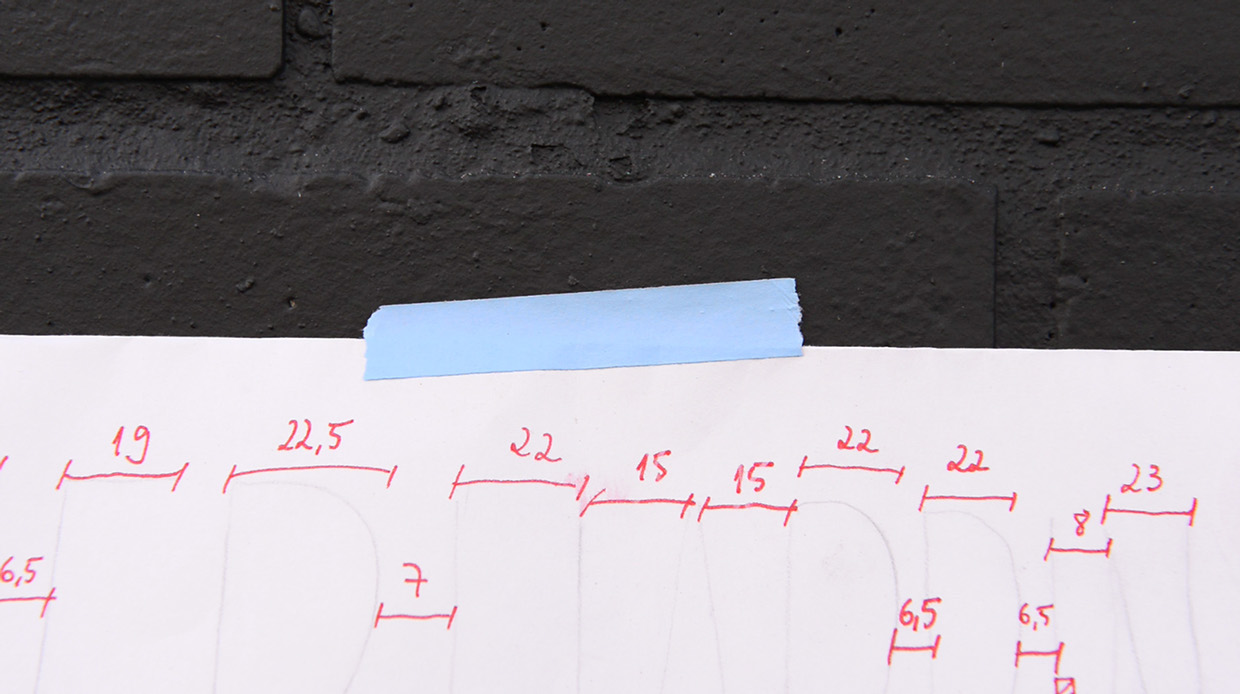 19 22,5 22 15 15 22 22 8 23
6,5 7 6,5 6,5